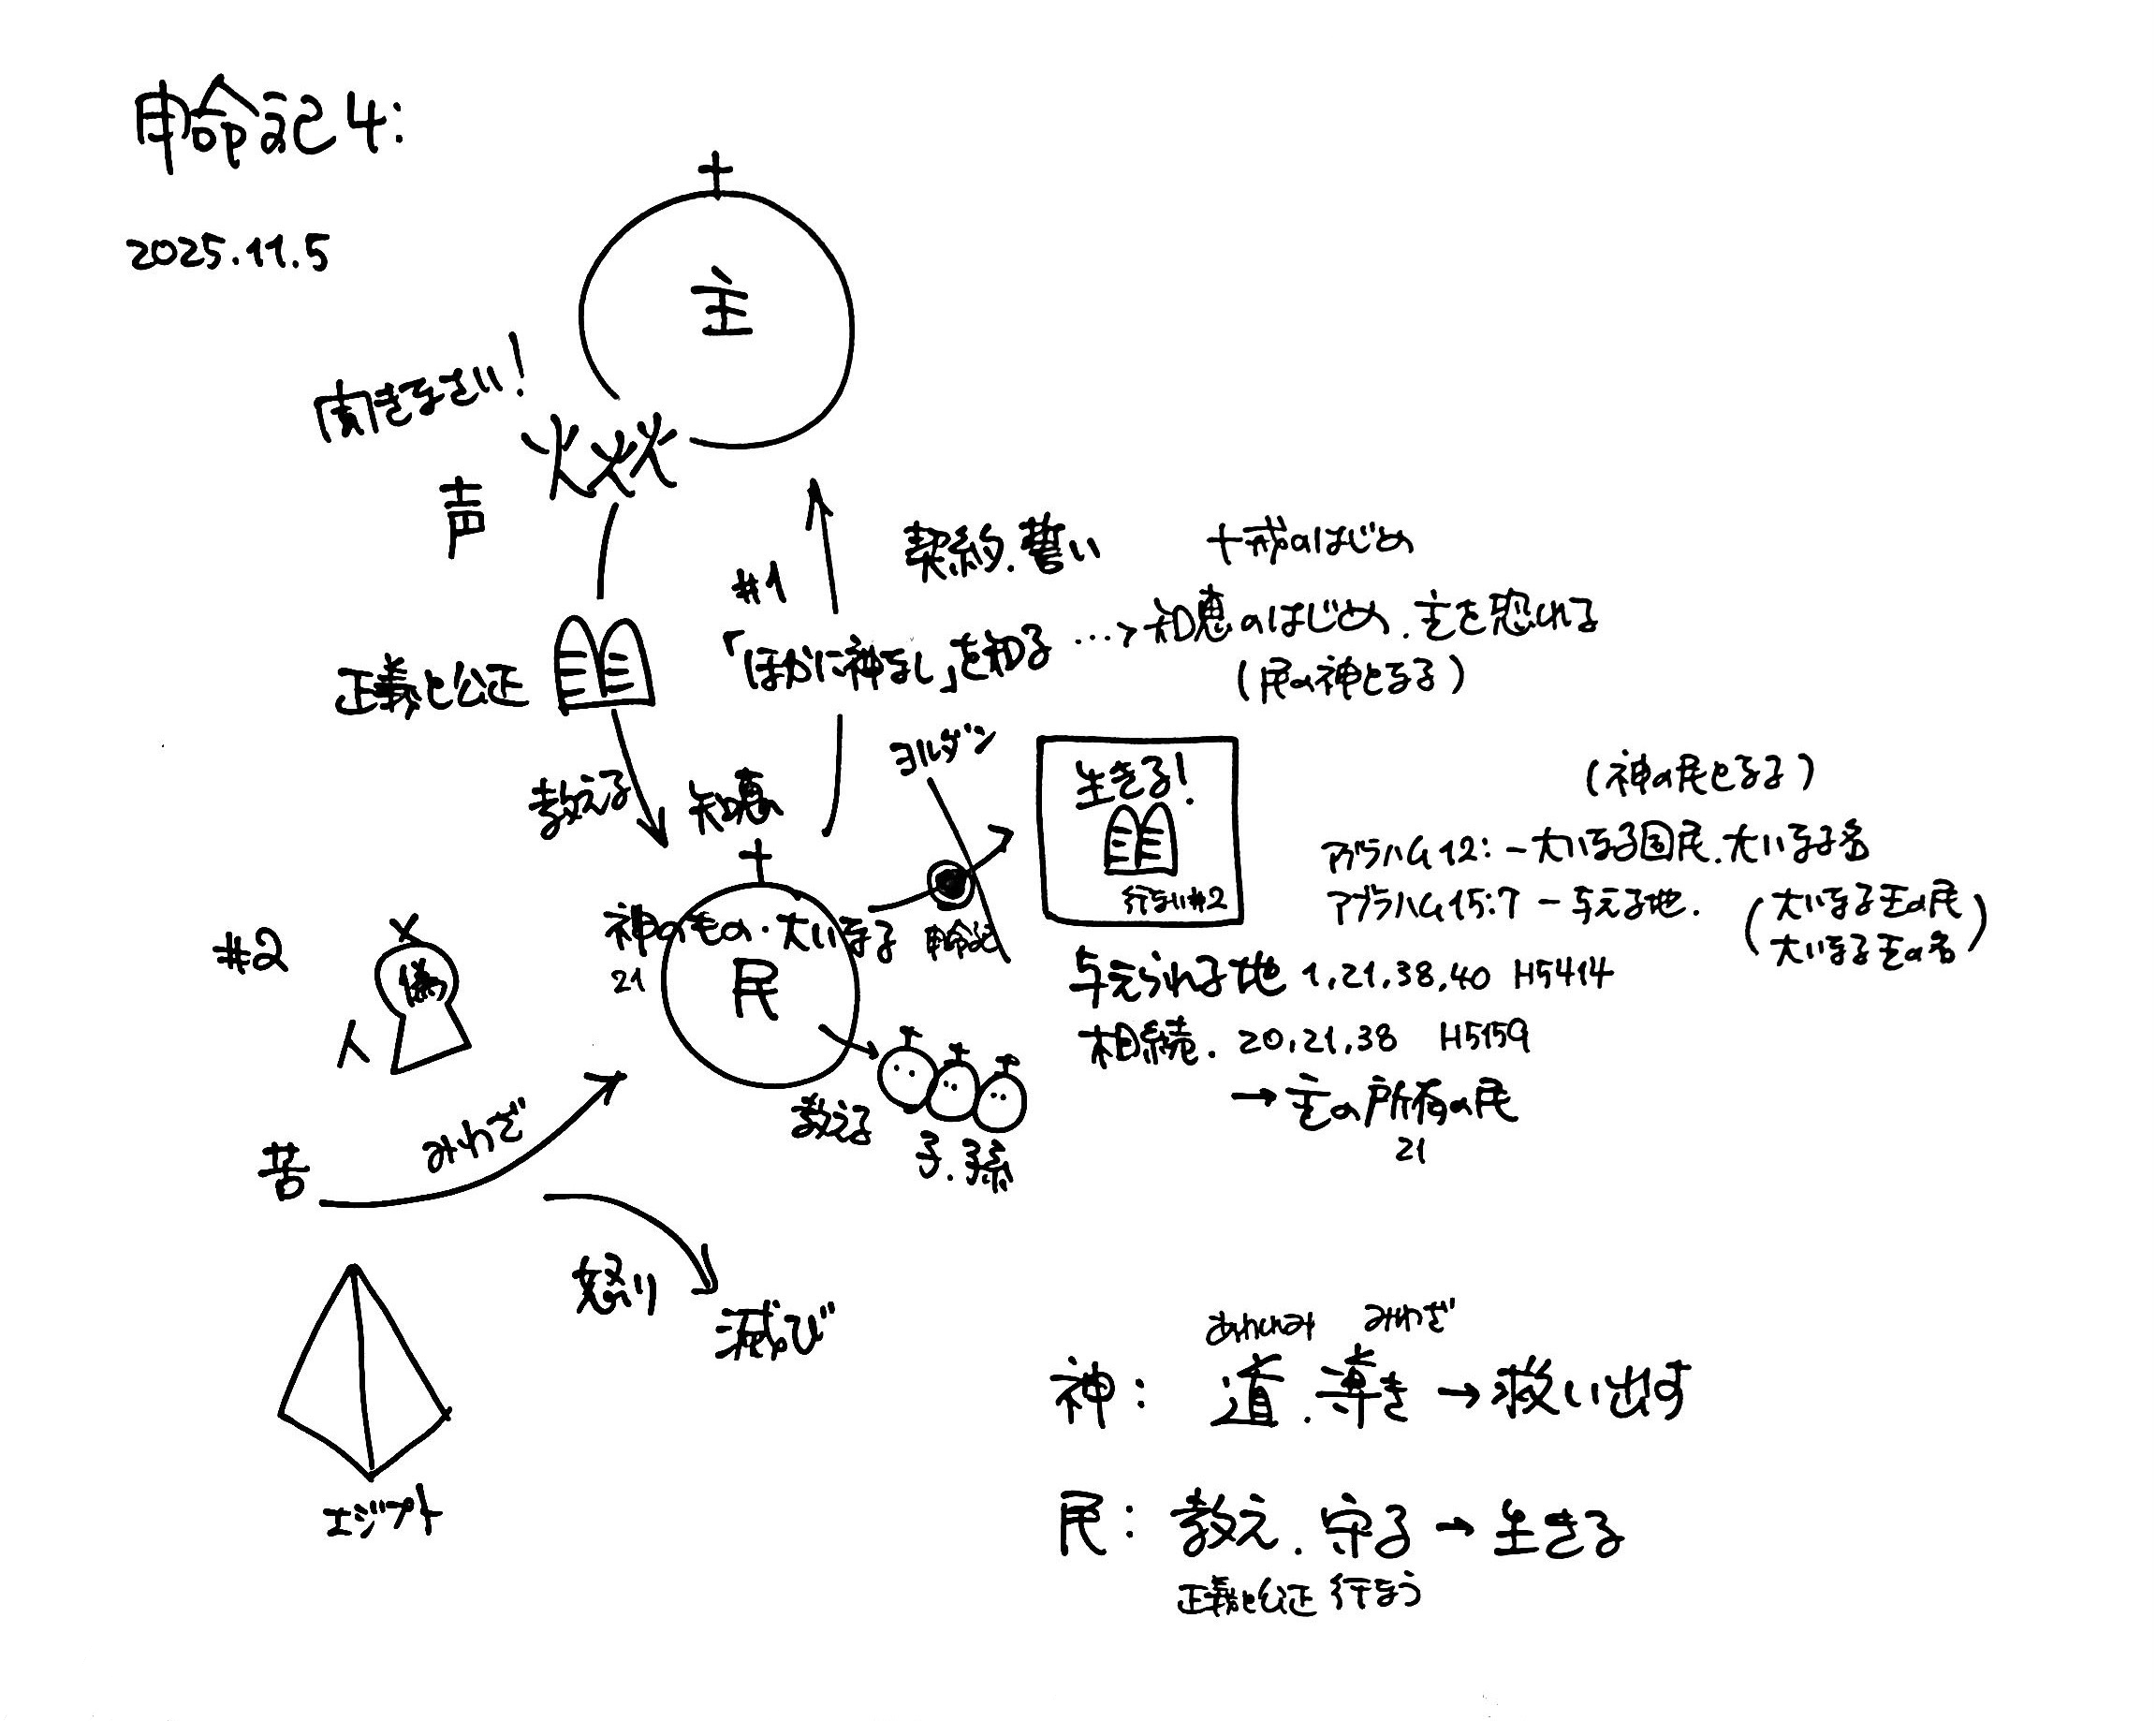 申命記4:
2025.11.5
主
聞きなさい!
火火火
声
契約.誓い
十戒のはじめ
#1
「ほかに神なし」を知る …→ 知恵のはじめ.主を恐れる
(民の神となる)
正義と公正
教える
知恵
ヨルダン
生きる!
行ない#2
(神の民となる)
アブラハム12:-大いなる国民.大いなる名
アブラハム15:7-与える地.
(大いなる王の民
大いなる王の名)
神のもの・大いなる
21
申命記
民
#2
偽
人
与えられる地 1,21,38,40 H5414
相続. 20,21,38 H5159
→主の所有の民
21
教える
子.孫
苦
みわざ
怒り
滅び
エジプト
あわれみ みわざ
神: 道.導き→救い出す
民: 教え.守る→生きる
正義と公正 行なう